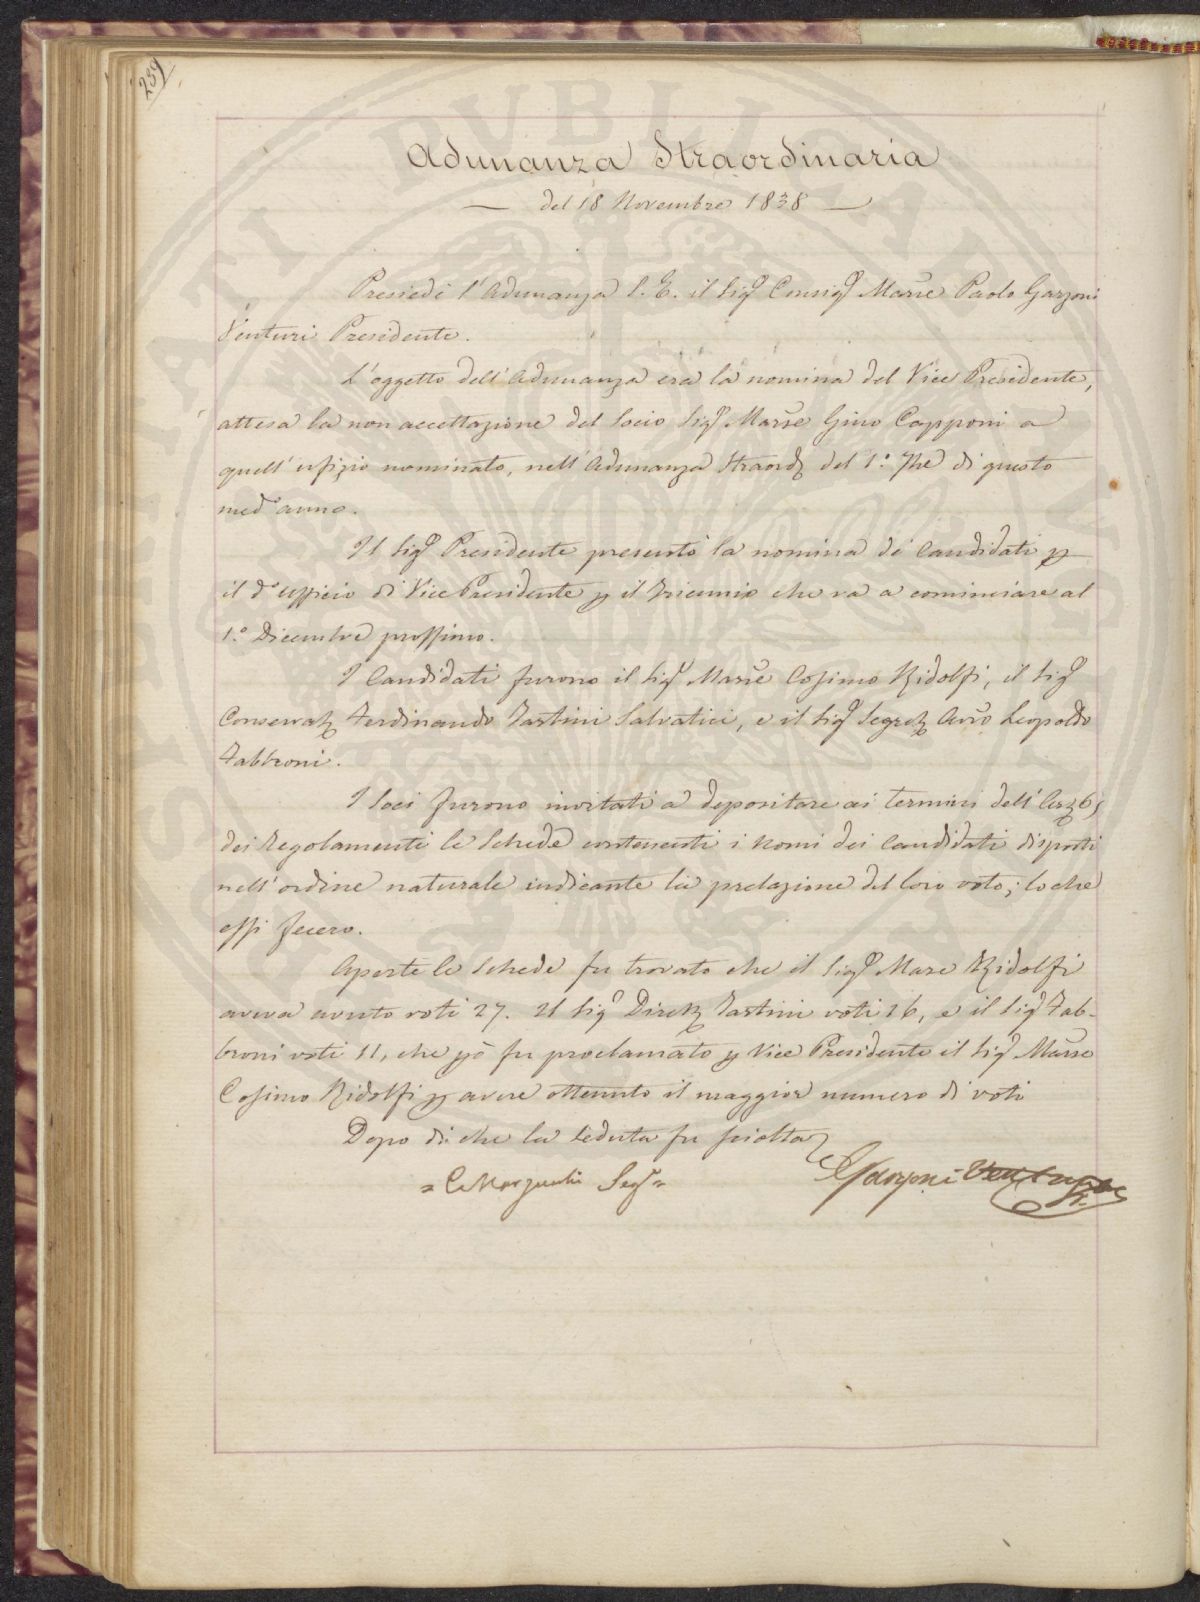 239
Adunanza Straordinaria
— del 18 Novembre 1838 —
Presiedè l'Adunanza S. E. il Sigr Consigr Marse Paolo Garzoni
Venturi Presidente.
L'oggetto dell'Adunanza era la nomina del Vice Presidente,
attesa la non accettazione del Socio Sigr Marse Gino Capponi a
quell'ufizio nominato, nell'Adunanza Straord. del 1.º 7bre di questo
medo anno.
Il Sigr Presidente presentò la nomina dei Candidati p
il do Ufficio di Vice Presidente p il Triennio che va a cominciare al
1.º Dicembre prossimo.
I Candidati furono il Sigr Marse Cosimo Ridolfi, il Sigr
Conservat. Ferdinando Tartini Salvatici, e il Sigr Segret. Avvo Leopoldo
Fabbroni.
I Soci furono invitati a depositare ai termini dell'Art. 65
dei Regolamenti le Schede contenenti i Nomi dei Candidati disposti
nell'ordine naturale indicante la prelazione del loro voto; lo che
essi fecero.
Aperte le Schede fu trovato che il Sigr Marse Ridolfi
aveva avuto voti 27. Il Sigr Dirett. Tartini voti 26, e il Sigr Fab-
broni voti 11, che pò fu proclamato p Vice Presidente il Sigr Marse
Cosimo Ridolfi p avere ottenuto il maggior numero di voti
Dopo di che la Seduta fu sciolta
Segr
Garzoni Venturi